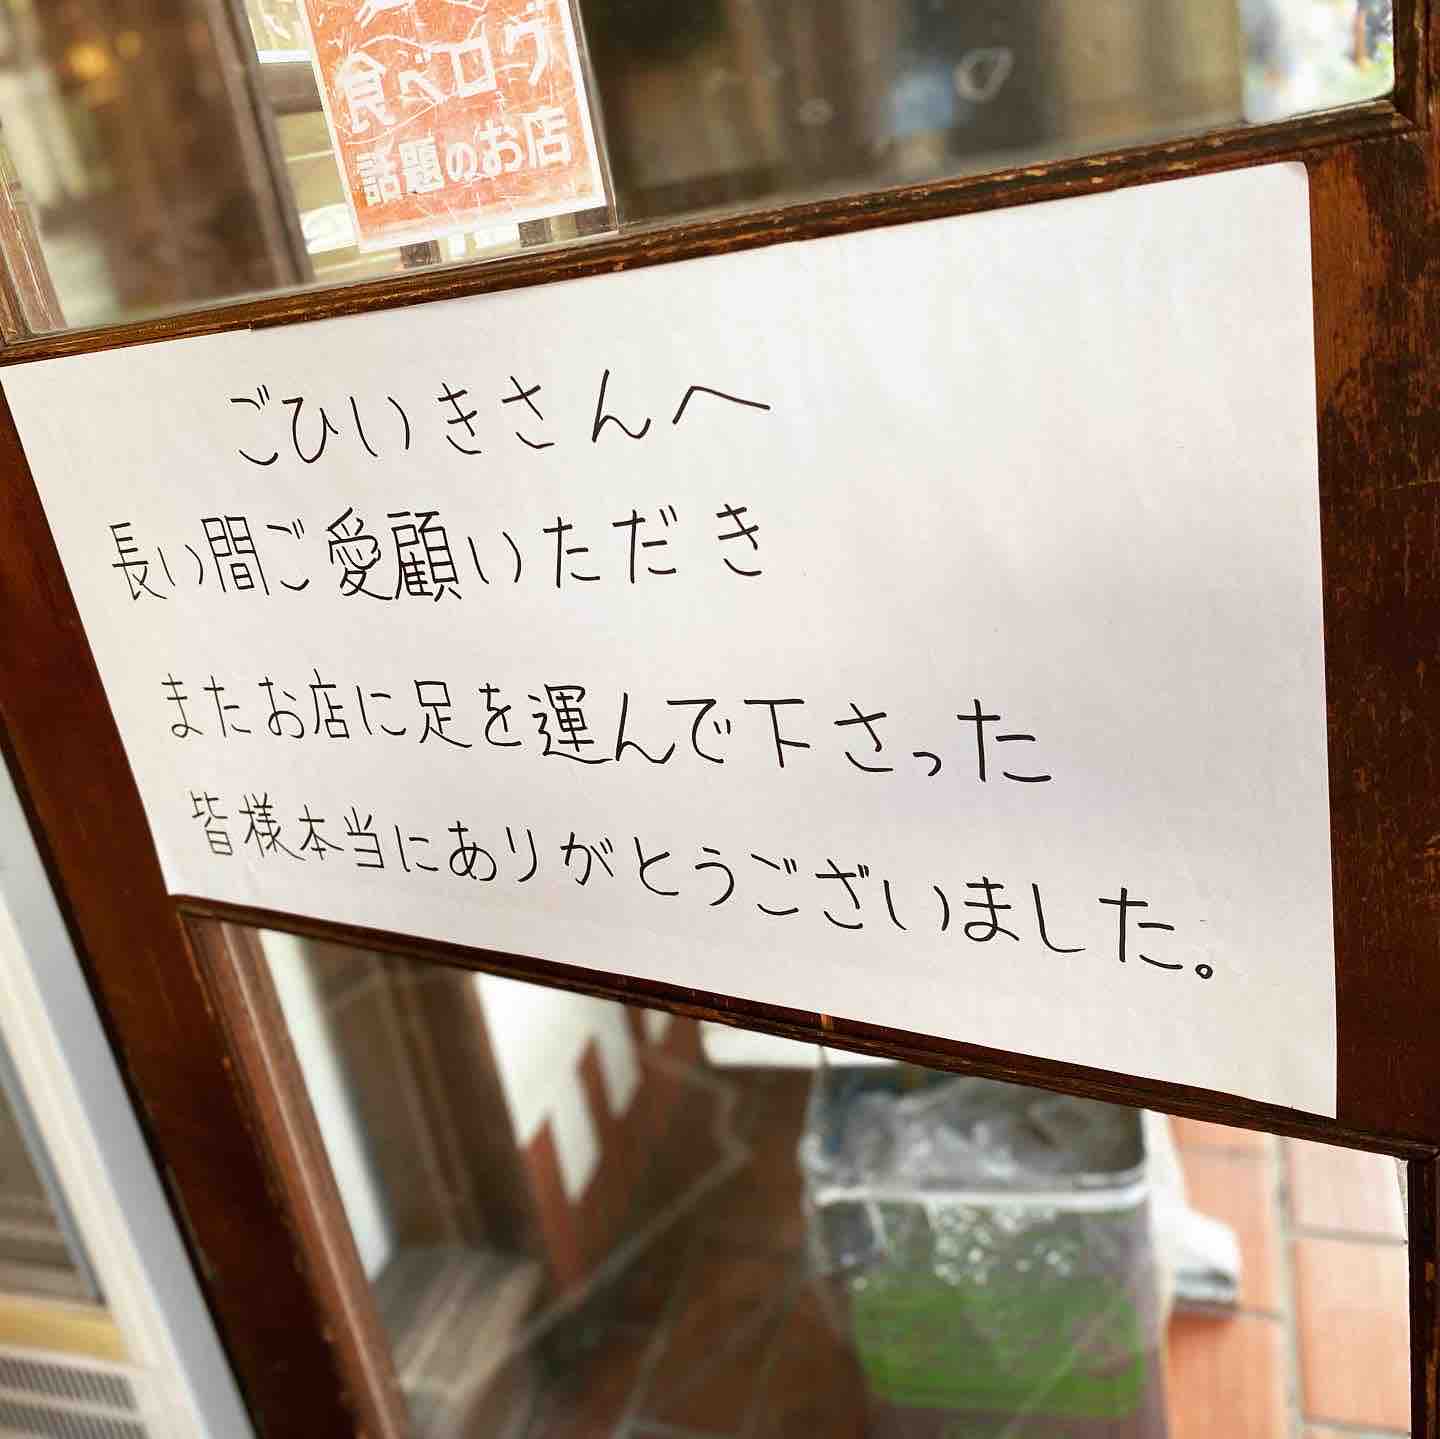 食べログ
話題のお店
ごひいきさんへ
長い間ご愛顧いただき
またお店に足を運んで下さった
皆様本当にありがとうございました。